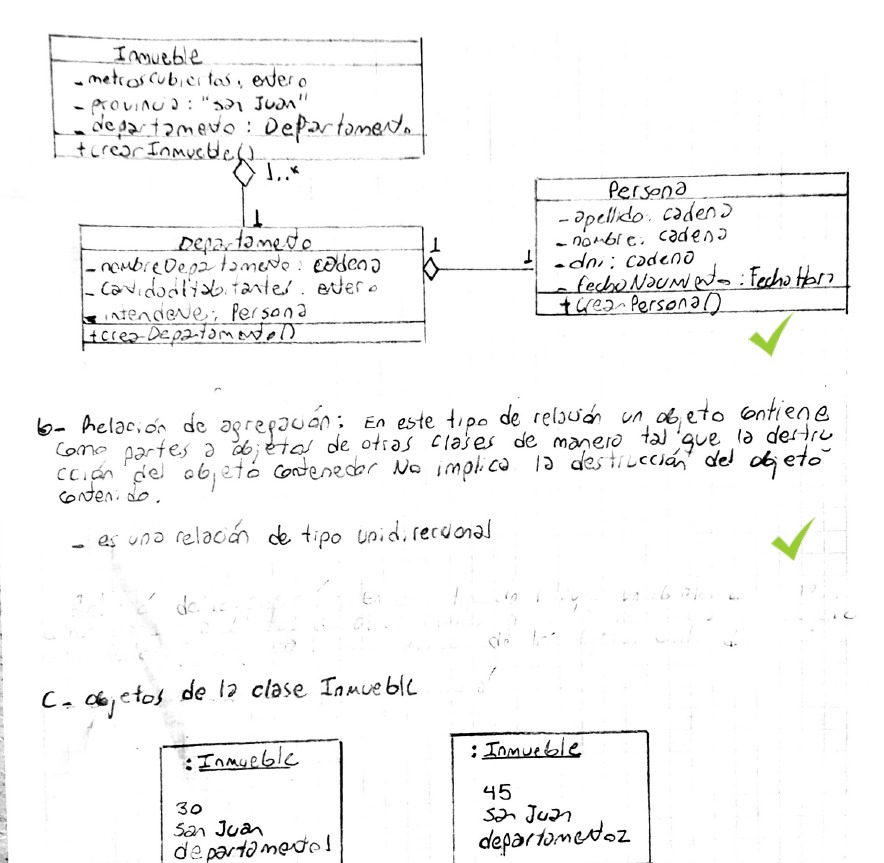 Inmueble
- metrosCubiertos: entero
- provincia: "San Juan"
- departamento: Departamento
+ crearInmueble()
1..*
1
Departamento
- nombreDepartamento: cadena
- cantidadHabitantes: entero
- intendente: Persona
+ crearDepartamento()
1
1
Persona
- apellido: cadena
- nombre: cadena
- dni: cadena
- fechaNacimiento: FechaHora
+ crearPersona()
b- Relación de agregación: En este tipo de relación un objeto contiene
como partes a objetos de otras clases de manera tal que la destru
cción del objeto contenedor No implica la destrucción del objeto
contenido.
- es una relación de tipo unidireccional
C- objetos de la clase Inmueble
: Inmueble
30
San Juan
departamento1
: Inmueble
45
San Juan
departamento2